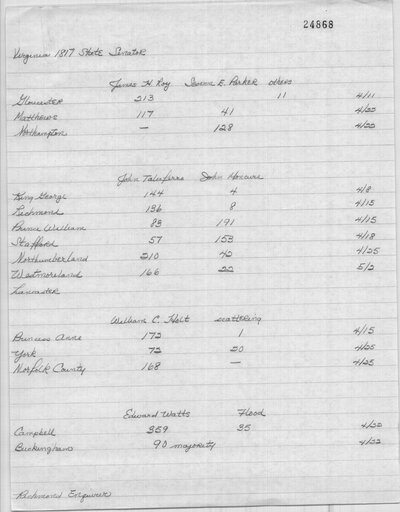 24868
Virginia 1817 State Senator
James H Roy Severn E. Parker others
Gloucester 213 11 4/11
Matthews 117 41 4/22
Northampton — 128 4/22
John Taliaferro John Moncure
King George 144 4 4/8
Richmond 136 8 4/15
Prince William 83 191 4/15
Stafford 57 153 4/18
Northumberland 210 42 4/25
Westmoreland 166 22 5/2
Lancaster
William C. Holt scattering
Princess Anne 172 1 4/15
York 72 20 4/25
Norfolk County 168 — 4/25
Edward Watts Flood
Campbell 359 35 4/22
Buckingham 90 majority 4/22
Richmond Enquirer